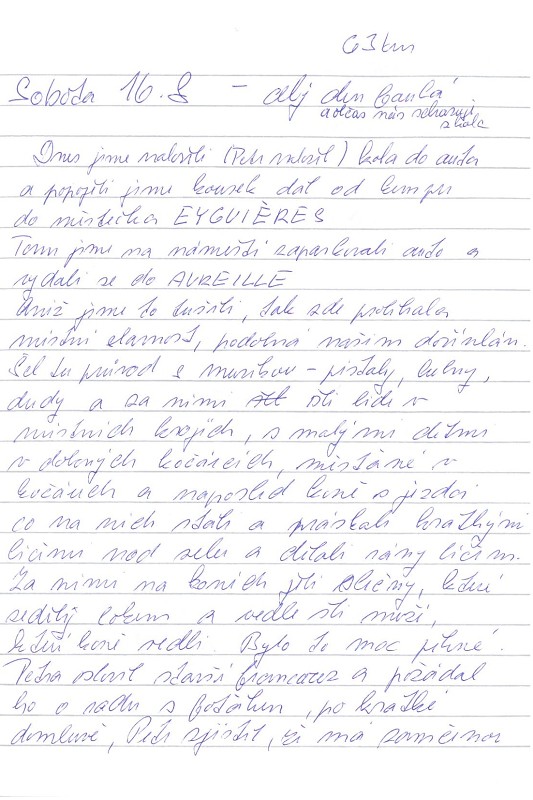 63 km
Sobota 16.8 – celý den
a občas nás
Dnes jsme naložili (Petr naložil) kola do auta
a popojeli jsme kousek dál od kempu
do městečka EYGUIÈRES
Tam jsme na náměstí zaparkovali auto a
vydali se do AUREILLE
Aniž jsme to tušili, tak zde probíhala
místní slavnost, podobná našim dožínkám.
Šel tu průvod s muzikou – píšťaly, bubny,
dudy a za nimi šli lidé v
místních krojích, s malými dětmi
v dobových kočárcích, měšťané v
kočárech a naposled koně s jezdci
co na nich stáli a práskali krátkými
biči nad sebou a dělali rány bičem.
Za nimi na koních jeli slečny, které
seděly bokem a vedle šli muži,
kteří koně vedli. Bylo to moc pěkné.
Petra oslovil starší francouz a požádal
ho o radu s foťákem, po krátké
domluvě, Petr zjistil, že má